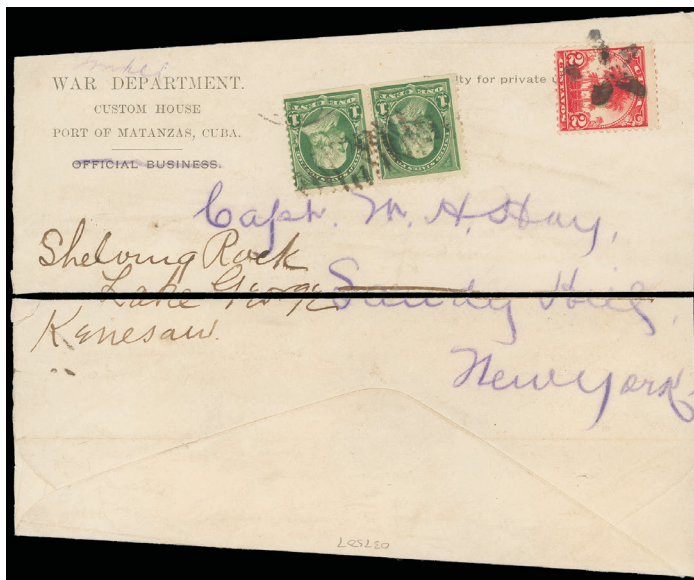 WAR DEPARTMENT.
CUSTOM HOUSE
PORT OF MATANZAS, CUBA.
OFFICIAL BUSINESS.
lty for private u
ONE CENT
1 1
ONE CENT
1 1
2 2
Capt. M. H. Hay,
Shelving Rock
Lake George
Kenesaw.
Sandy Hill,
New York.